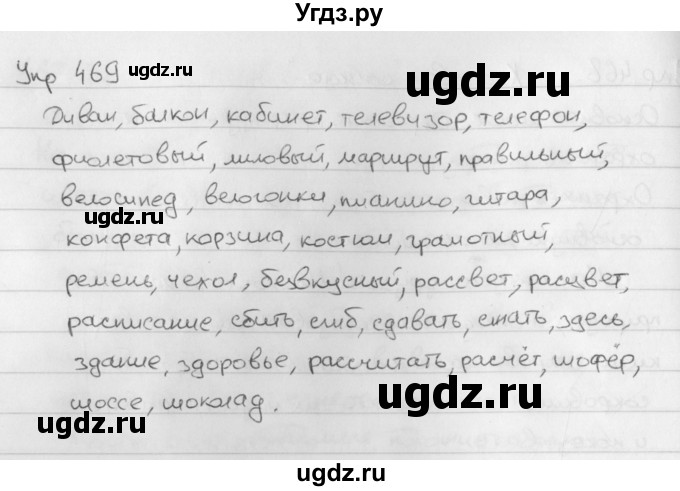 Угдз.ру
Упр 469
ugdz.ru
ugdz.ru
Диван, балкон, кабинет, телевизор, телефон,
фиолетовый, лиловый, маршрут, правильный,
велосипед, велогонки, пианино, гитара,
ugdz.ru
ugdz.ru
конфета, корзина, костюм, грамотный,
ремень, чехол, безвкусный, рассвет, расцвет,
расписание, сбить, сгиб, сдавать, сжать, здесь,
здание, здоровье, рассчитать, расчёт, шофёр,
шоссе, шоколад.
ugdz.ru
ugdz.ru
ugdz.ru